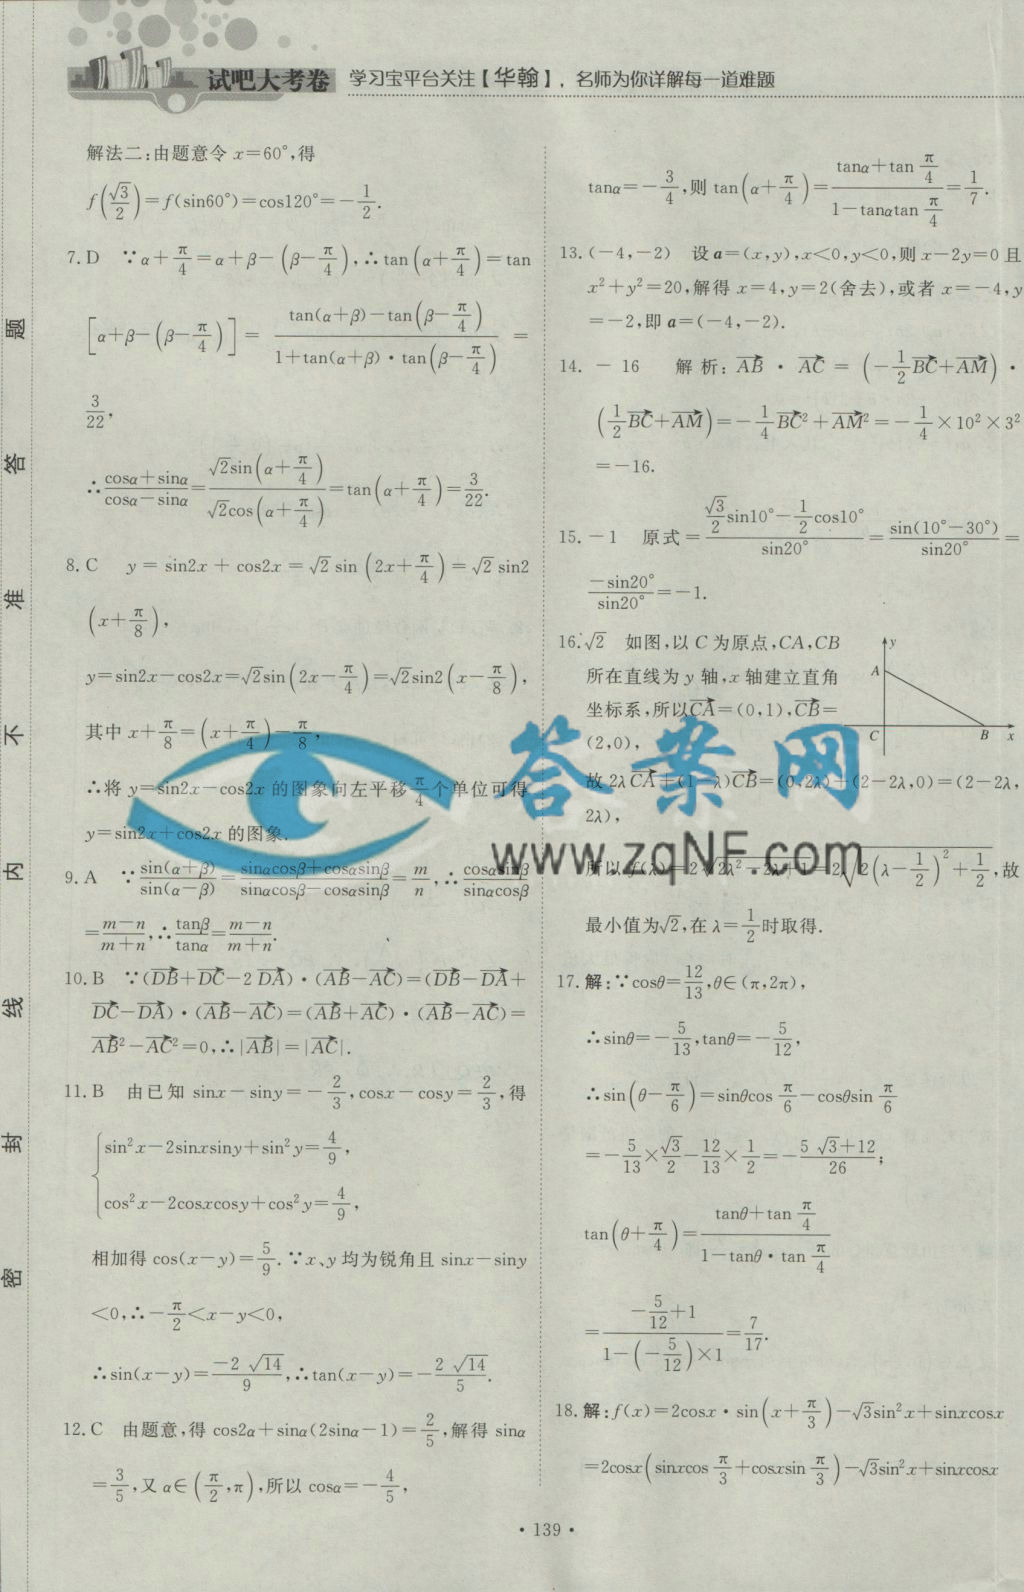 试吧大考卷 学习宝平台关注【华翰】，名师为你详解每一道难题
解法二:由题意令 x=60°,得
f(√3/2)=f(sin60°)=cos120°=-1/2.
7.D ∵α+π/4=α+β-(β-π/4),∴tan(α+π/4)=tan
[α+β-(β-π/4)]=(tan(α+β)-tan(β-π/4))/(1+tan(α+β)·tan(β-π/4))=
3/22,
∴(cosα+sinα)/(cosα-sinα)=(√2sin(α+π/4))/(√2cos(α+π/4))=tan(α+π/4)=3/22.
8.C y=sin2x+cos2x=√2sin(2x+π/4)=√2sin2
(x+π/8),
y=sin2x-cos2x=√2sin(2x-π/4)=√2sin2(x-π/8),
其中 x+π/8=(x+π/4)-π/8,
∴将 y=sin2x-cos2x 的图象向左平移π/4个单位可得
y=sin2x+cos2x 的图象.
9.A ∵sin(α+β)/sin(α-β)=(sinαcosβ+cosαsinβ)/(sinαcosβ-cosαsinβ)=m/n,∴cosαsinβ/sinαcosβ
=(m-n)/(m+n),∴tanβ/tanα=(m-n)/(m+n).
10.B ∵(DB+DC-2DA)·(AB-AC)=(DB-DA+
DC-DA)·(AB-AC)=(AB+AC)·(AB-AC)=
AB²-AC²=0,∴|AB|=|AC|.
11.B 由已知 sinx-siny=-2/3,cosx-cosy=2/3,得
{sin²x-2sinxsiny+sin²y=4/9,
cos²x-2cosxcosy+cos²y=4/9,
相加得 cos(x-y)=5/9.∵x、y 均为锐角且 sinx-siny
<0,∴-π/2<x-y<0,
∴sin(x-y)=(-2√14)/9,∴tan(x-y)=-(2√14)/5.
12.C 由题意,得 cos2α+sinα(2sinα-1)=2/5,解得 sinα
=3/5,又 α∈(π/2,π),所以 cosα=-4/5,
tanα=-3/4,则 tan(α+π/4)=(tanα+tan π/4)/(1-tanαtan π/4)=1/7.
13.(-4,-2) 设 a=(x,y),x<0,y<0,则 x-2y=0 且
x²+y²=20,解得 x=4,y=2(舍去),或者 x=-4,y
=-2,即 a=(-4,-2).
14.-16 解析:AB·AC=(-1/2BC+AM)·
(1/2BC+AM)=-1/4BC²+AM²=-1/4×10²×3²
=-16.
15.-1 原式=(√3/2sin10°-1/2cos10°)/sin20°=sin(10°-30°)/sin20°=
-sin20°/sin20°=-1.
16.√2 如图,以 C 为原点,CA,CB
所在直线为 y 轴,x 轴建立直角
坐标系,所以CA=(0,1),CB=
(2,0),
y
A
C B x
故 2λCA+(1-λ)CB=(0,2λ)+(2-2λ,0)=(2-2λ,
2λ),
所以 f(λ)=2√(2λ²-2λ+1)=2√(2(λ-1/2)²+1/2),故
最小值为√2,在 λ=1/2时取得.
17.解:∵cosθ=12/13,θ∈(π,2π),
∴sinθ=-5/13,tanθ=-5/12,
∴sin(θ-π/6)=sinθcos π/6-cosθsin π/6
=-5/13×√3/2-12/13×1/2=-(5√3+12)/26;
tan(θ+π/4)=(tanθ+tan π/4)/(1-tanθ·tan π/4)
=(-5/12+1)/(1-(-5/12)×1)=7/17.
18.解:f(x)=2cosx·sin(x+π/3)-√3sin²x+sinxcosx
=2cosx(sinxcos π/3+cosxsin π/3)-√3sin²x+sinxcosx
·139·
题
答
准
不
内
线
封
密
答案网
www.zqNF.com